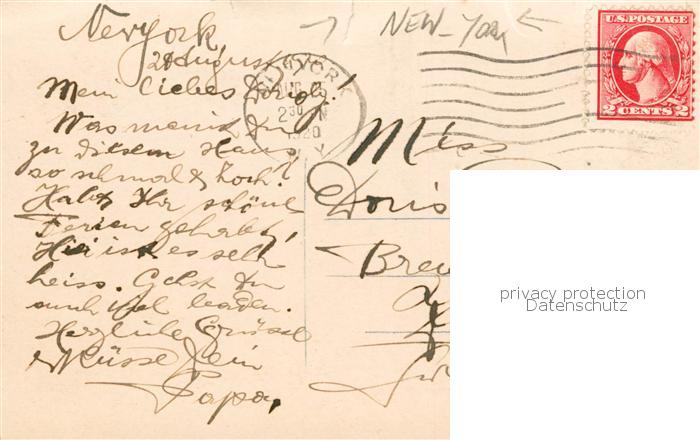 New york
NEW-YORK
28 August
Mein liebes
Was meinst Du
zu diesem Haus,
so schmal & hoch!
Habt Ihr schöne
Ferien gehabt,
Hier ist es sehr
heiss. Gehst Du
auch viel baden.
Herzliche Grüsse
& Küsse Dein
Papa,
NEW YORK
AUG
2 30
1920
N.Y.
U.S. POSTAGE
2 CENTS 2
Miss
Doris
privacy protection
Datenschutz